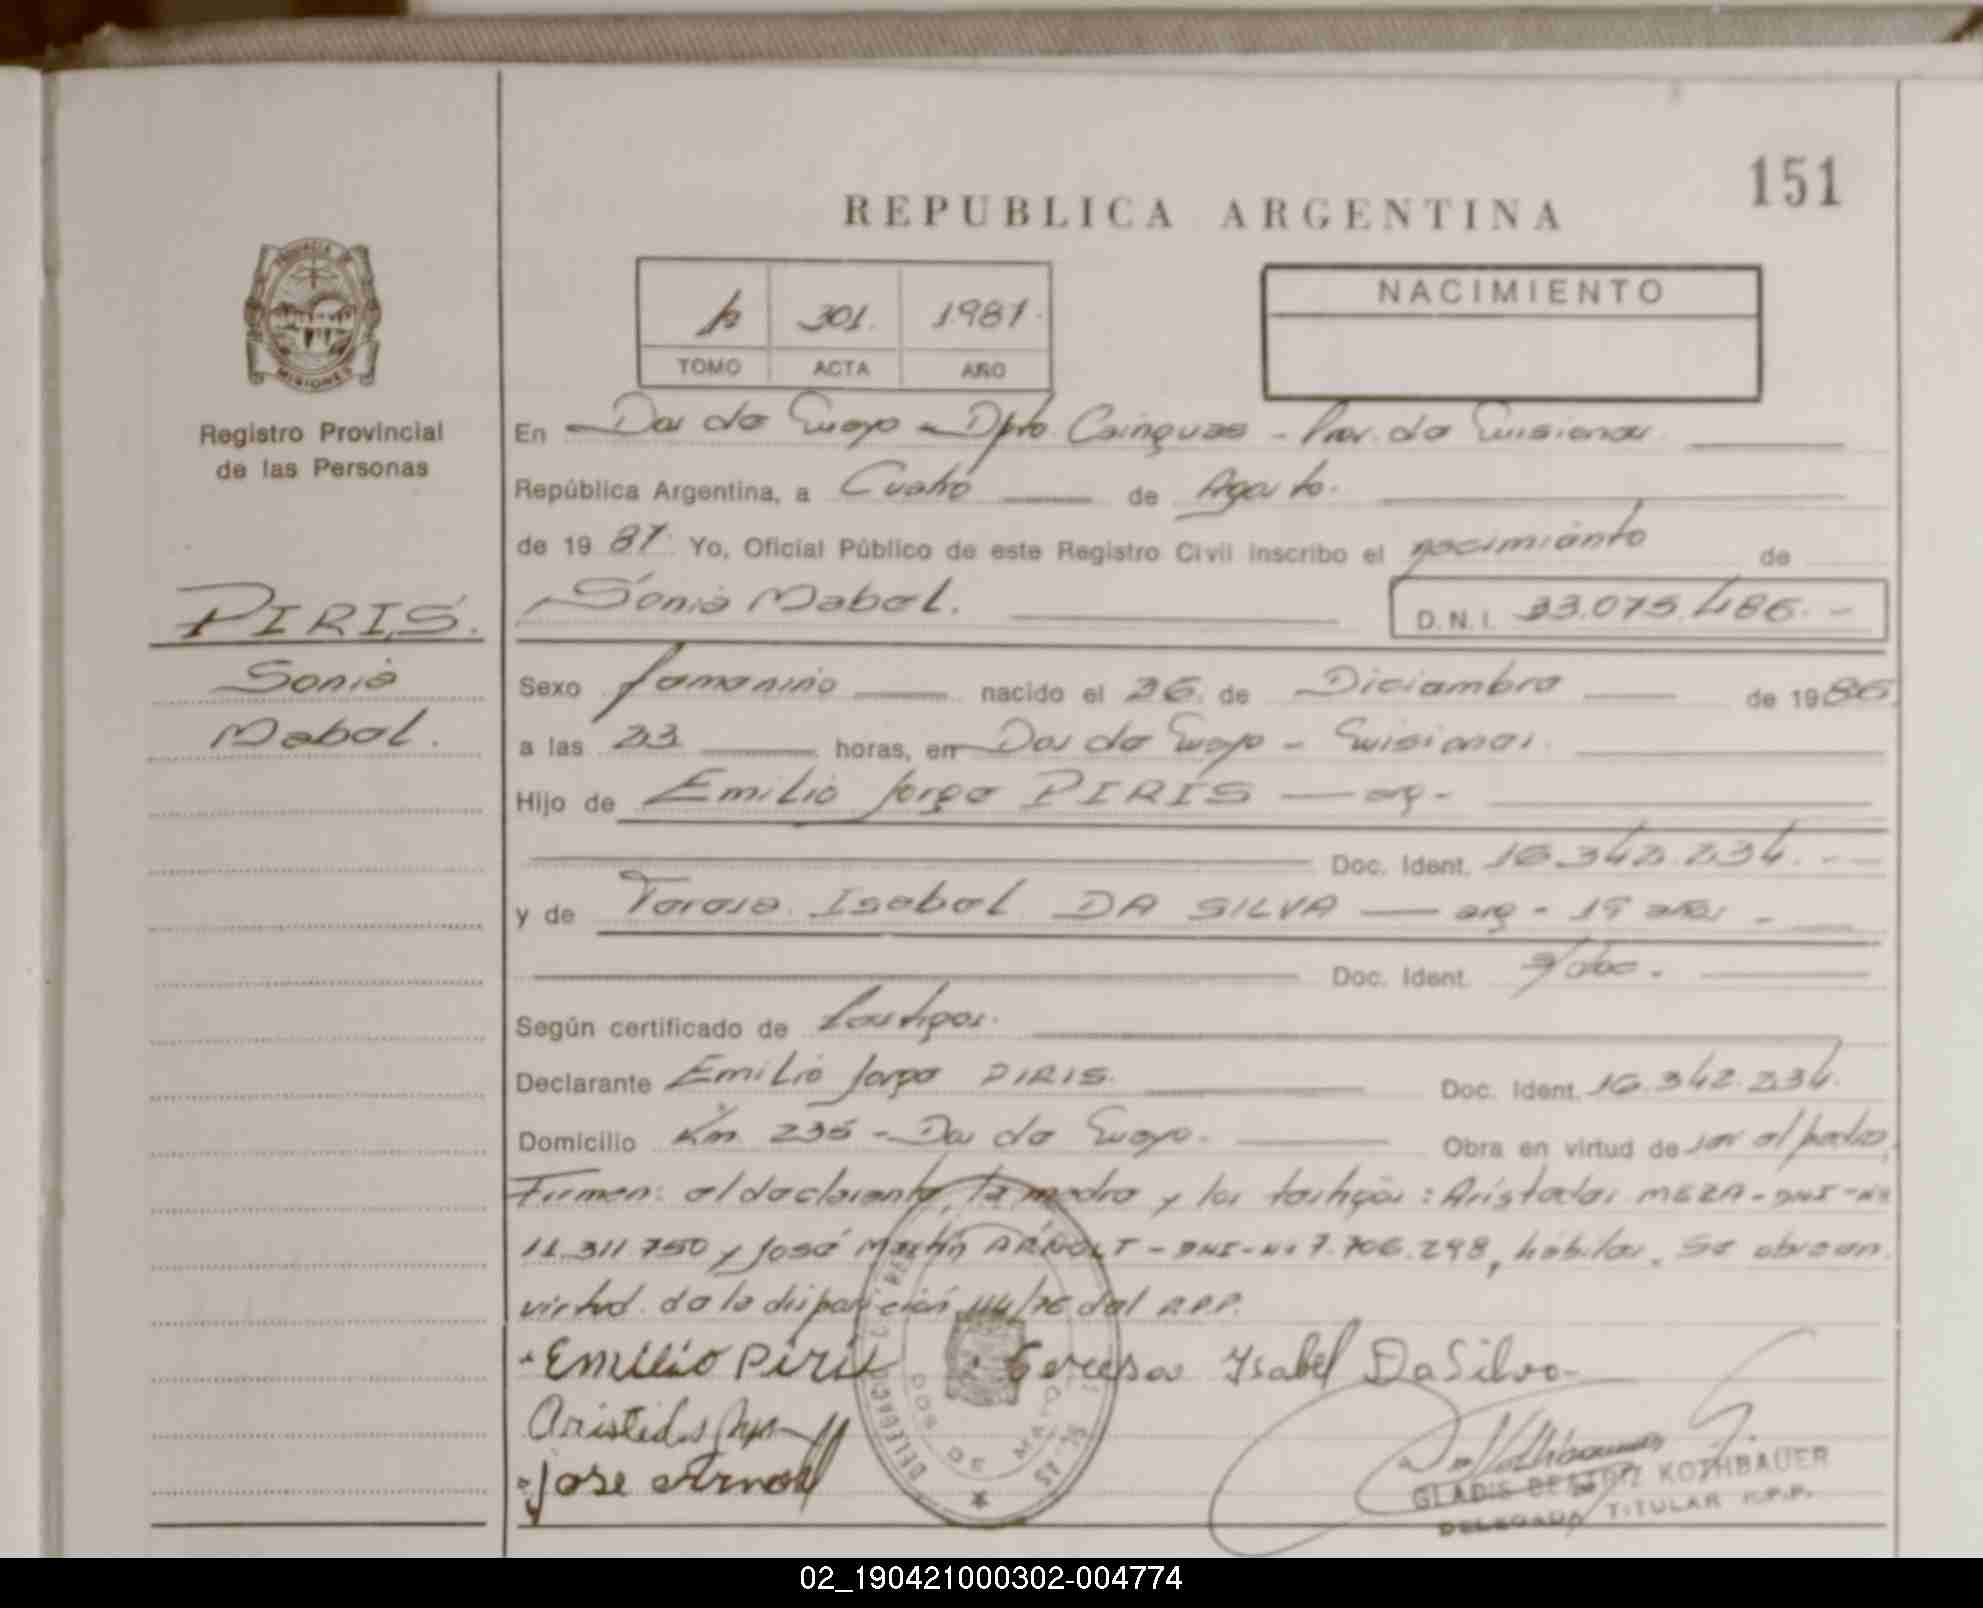 151
REPUBLICA ARGENTINA
301. 1987.
TOMO ACTA AÑO
NACIMIENTO
PROVINCIA DE
MISIONES
Registro Provincial
de las Personas
En Dos de Mayo - Dpto. Cainguas - Prov. de Misiones.
República Argentina, a Cuatro de Agosto.
de 1987. Yo, Oficial Público de este Registro Civil inscribo el nacimiento de
Sonia Mabel. D.N.I. 33.075.486.-
PIRIS.
Sonia
Mabel.
Sexo femenino nacido el 26. de Diciembre de 1986.
a las 23 horas, en Dos de Mayo - Misiones.
Hijo de Emilio Jorge PIRIS — arg -
Doc. Ident. 16.342.234.-
y de Teresa Isabel DA SILVA — arg - 19 años -
Doc. Ident. s/doc.
Según certificado de testigos.
Declarante Emilio Jorge PIRIS. Doc. Ident. 16.342.234.
Domicilio Km 235 - Dos de Mayo. Obra en virtud de ser el padre.
Firman: el declarante, la madre y los testigos: Aristedes MEZA - DNI - Nº
11.311.750 y José Martín ARNOLT - DNI - Nº 7.706.298, hábiles. Se obra en
virtud de la disposición 114/76 del R.P.P.
Emilio Piris Teresa Ysabel Da Silva
Aristides
Jose Arnolt
DELEGACION
DOS DE MAYO
GLADIS BEATRIZ KOTHBAUER
DELEGADA TITULAR R.P.P.
02_190421000302-004774